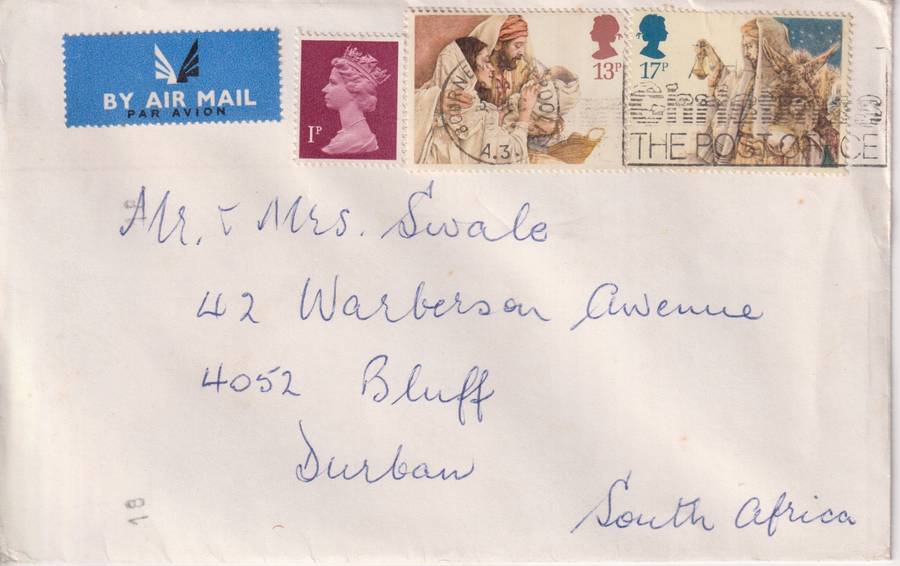 BY AIR MAIL
PAR AVION
1P
13P
17P
A.3.
THE POST OFFICE
Mr. & Mrs. Swale
42 Warberson Awenue
4052 Bluff
Durban
South Africa
18
18